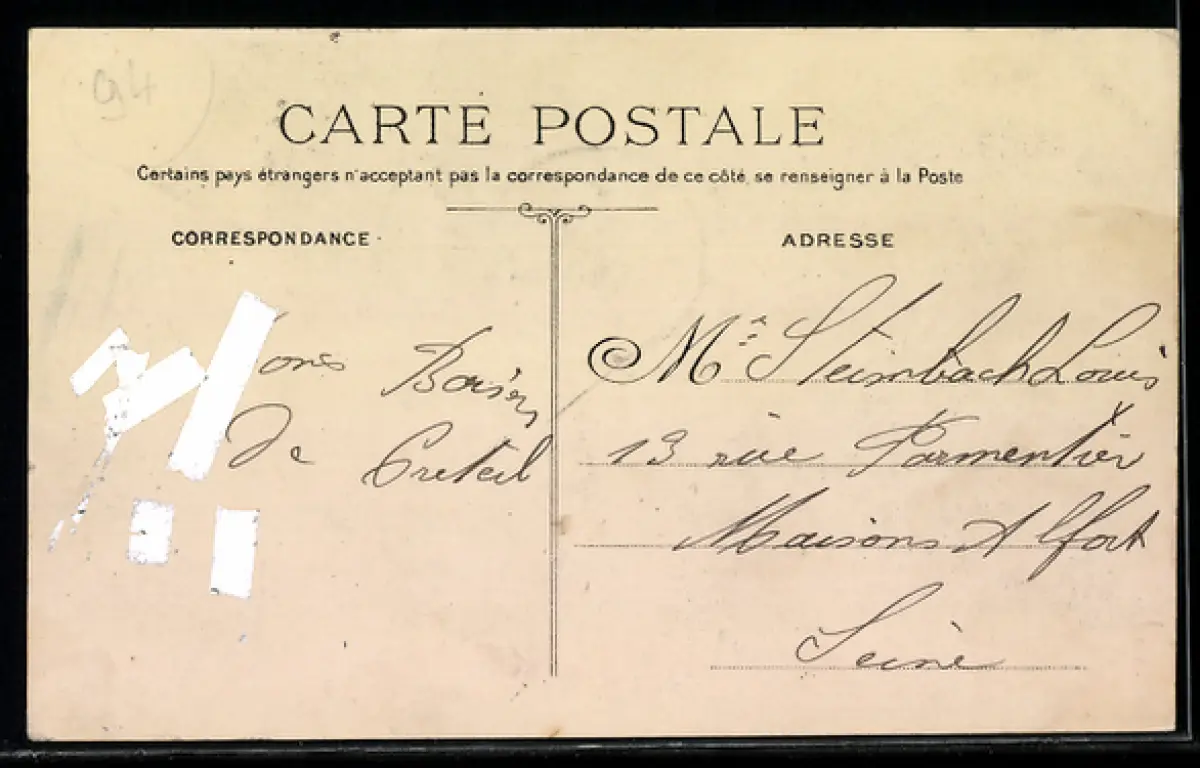 94
CARTE POSTALE
Certains pays étrangers n'acceptant pas la correspondance de ce côté, se renseigner à la Poste
CORRESPONDANCE
ons Baisers
De Creteil
ADRESSE
Mr Steimbach Louis
13 rue Parmentier
Maisons Alfort
Seine